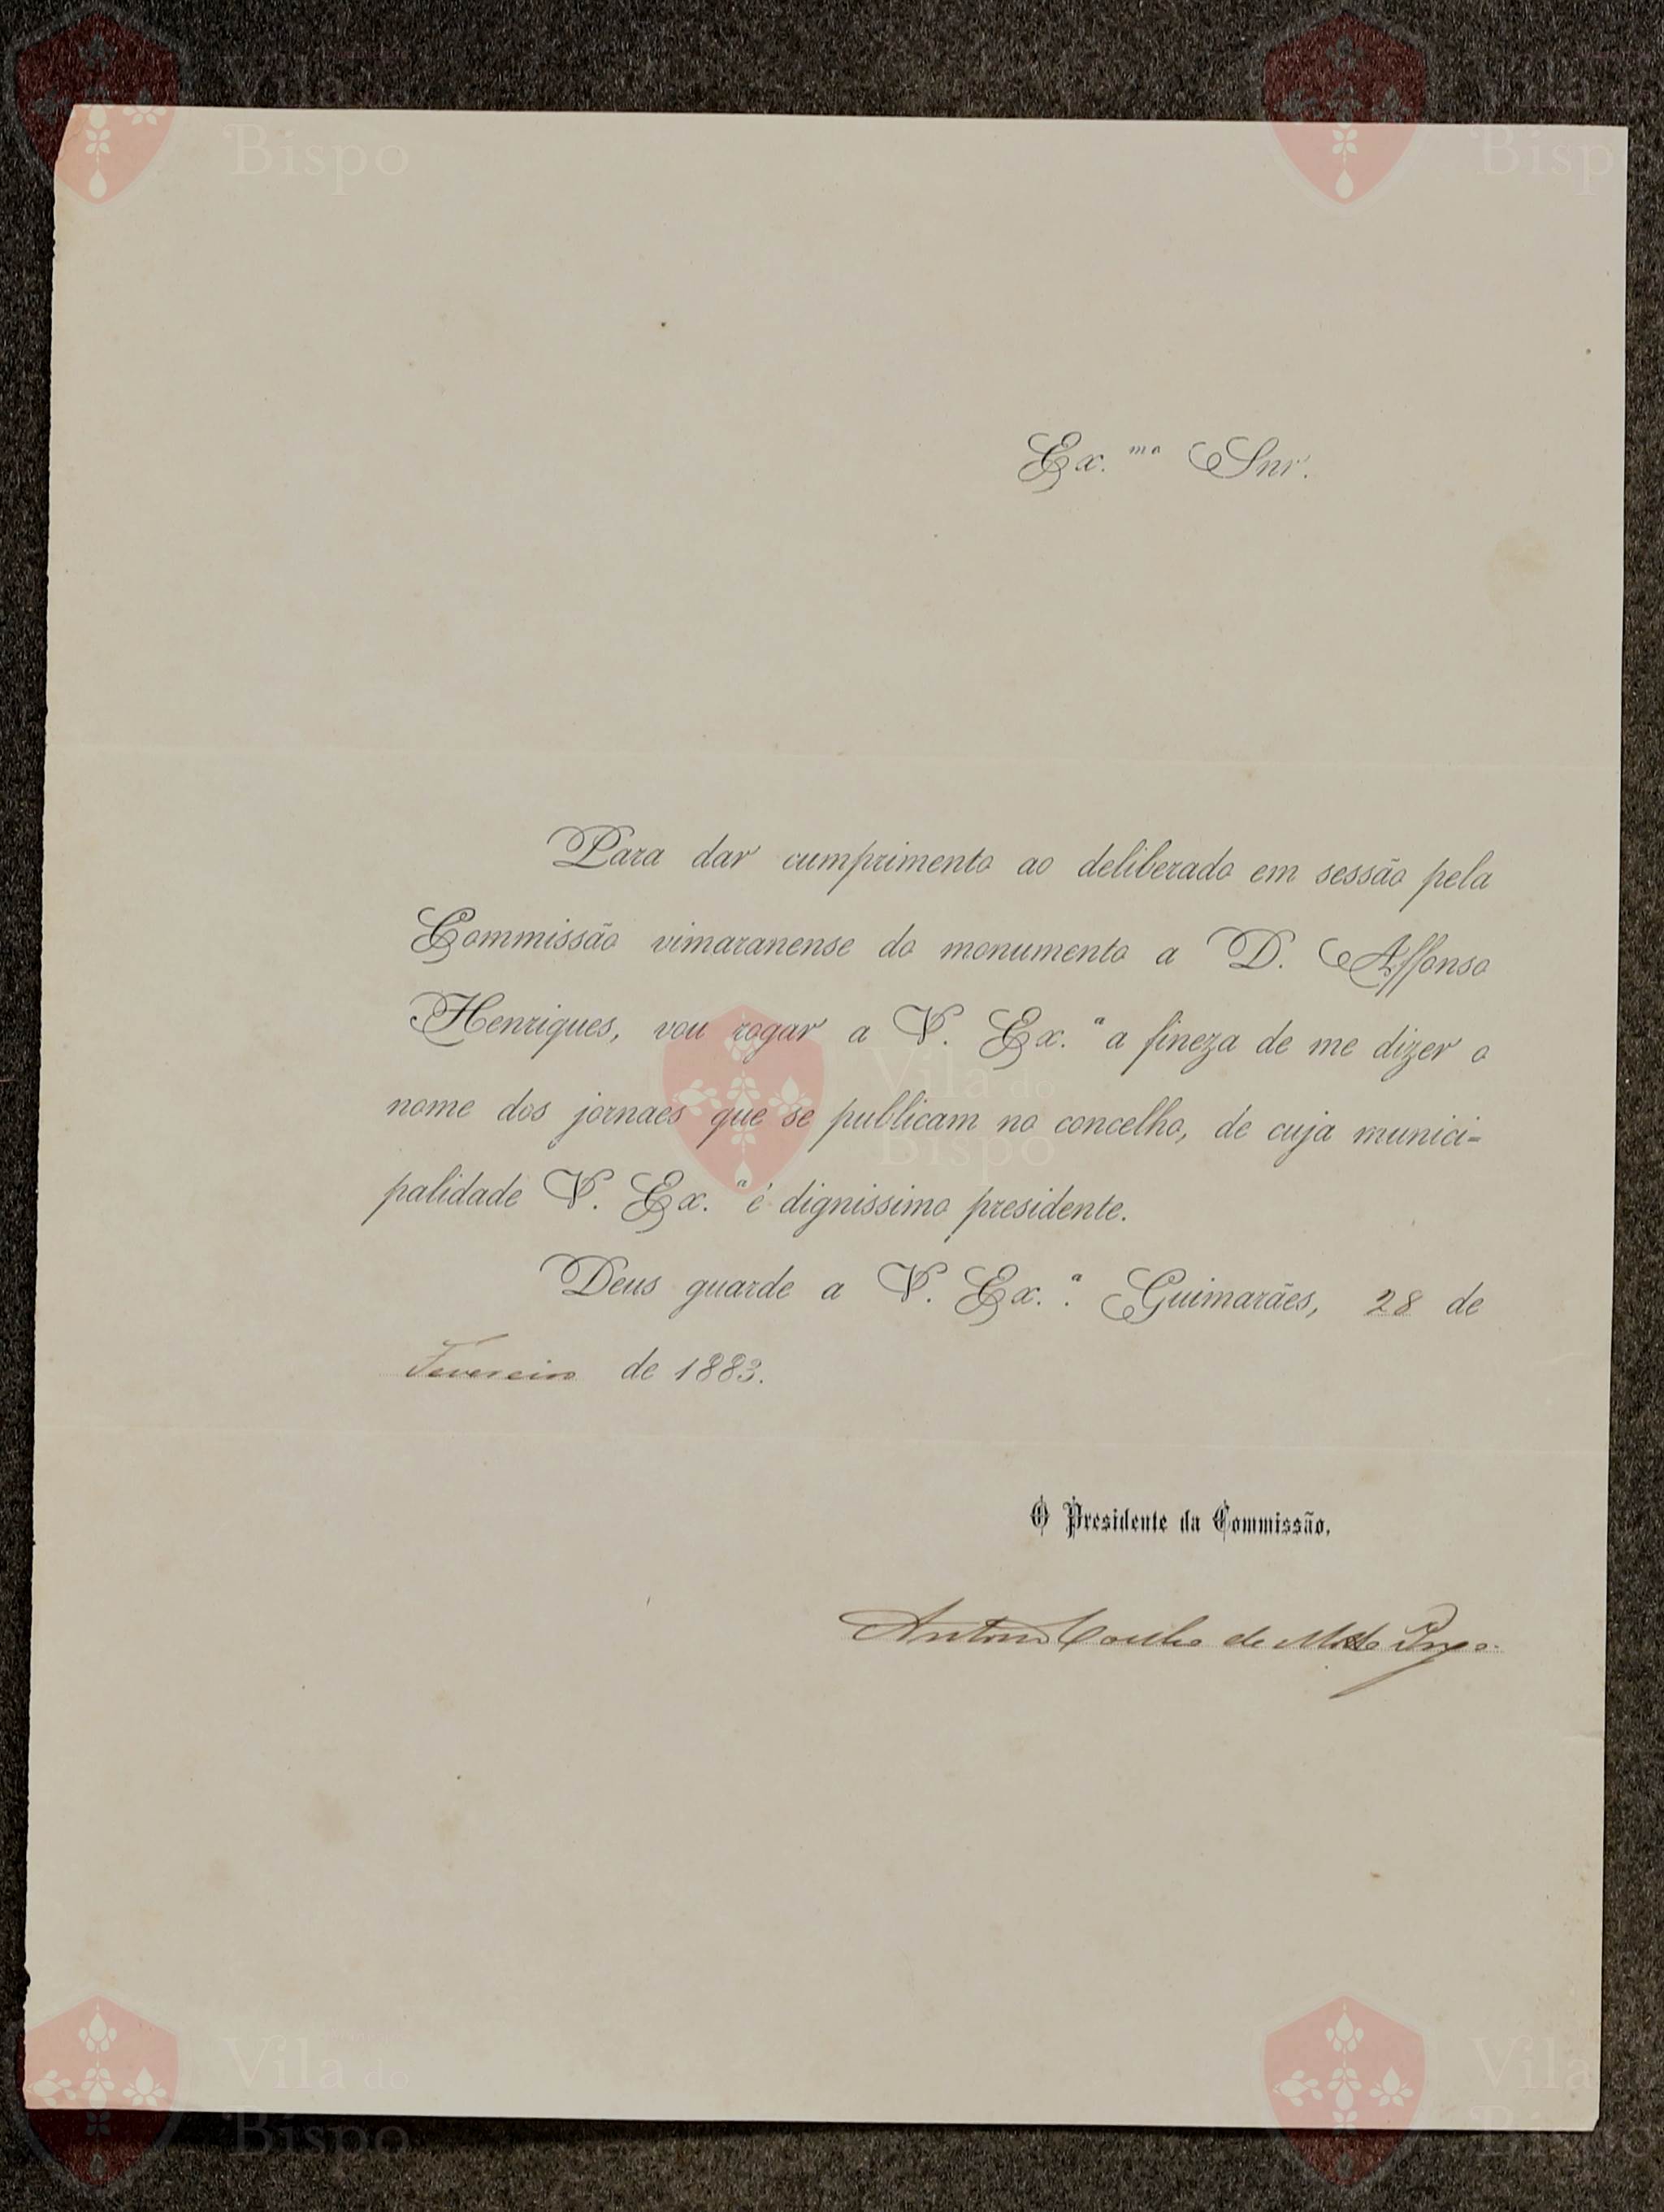 Ex.mo Snr.
Para dar cumprimento ao deliberado em sessão pela
Commissão vimaranense do monumento a D. Affonso
Henriques, vou rogar a V. Ex.ª a fineza de me dizer o
nome dos jornaes que se publicam no concelho, de cuja munici-
palidade V. Ex.ª é dignissimo presidente.
Deus guarde a V. Ex.ª. Guimarães, 28 de
Fevereiro de 1883.
O Presidente da Commissão,
Antonio Coelho da Motta Prego
Vila do
Bispo